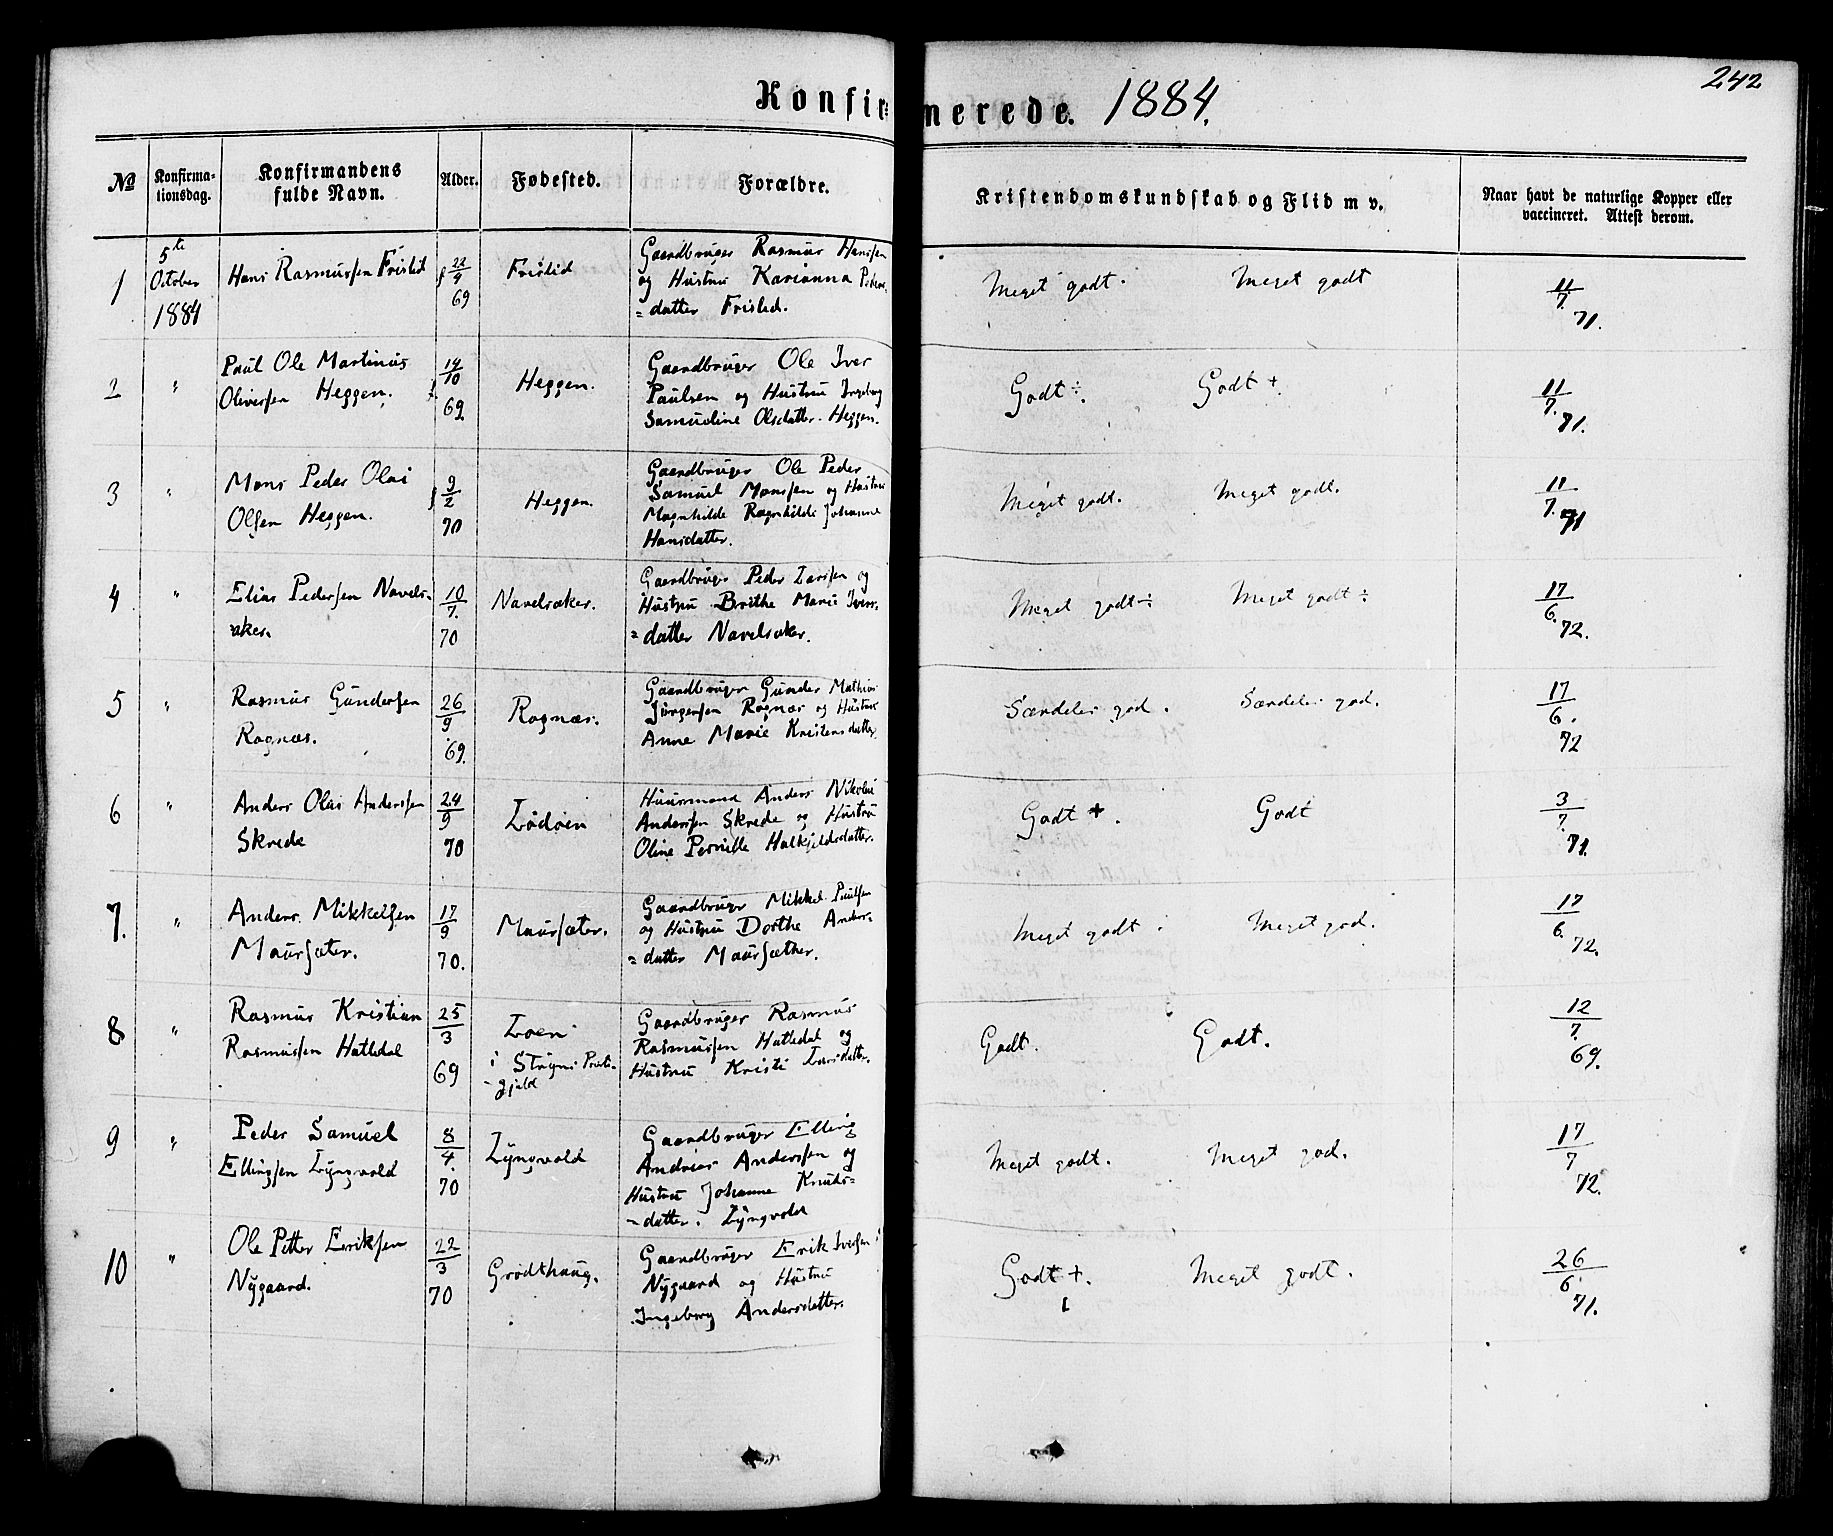 242
Konfirmerede. 1884.
№ Konfirma- Konfirmandens Alder. Fødested. Forældre. Kristendomskundskab og Flid m v. Naar havt de naturlige Kopper eller
tionsdag. fulde Navn. vaccineret. Attest derom.
1 5te October 1884
Hans Rasmussen Frislid
f 22/9 69
Frislid
Gaardbruger Rasmus Hanssen
og Hustru Karianna Peders-
=datter Frislid.
Meget godt. Meget godt
11/7. 71.
2 "
Paul Ole Martinus
Oliversen Heggen.
14/10 69
Heggen.
Gaardbruger Ole Iver
Paulsen og Hustru Ingeborg
Samueline Olsdatter. Heggen.
Godt ÷. Godt +.
11/7. 71.
3 "
Mons Peder Olai
Olsen Heggen.
9/2 70
Heggen.
Gaardbruger Ole Peder
Samuel Monssen og Hustru
Magnhilde Ragnhilde Johanne
Hansdatter.
Meget godt. Meget godt.
11/7. 71
4 "
Elias Pedersen Navels-
aker.
10/7. 70
Navelsaker.
Gaardbruger Peder Larssen og
Hustru Brithe Marie Ivers-
=datter Navelsaker.
Meget godt ÷ Meget godt ÷
17/6. 72.
5 "
Rasmus Gundersen
Rognæs.
26/9 69.
Rognæs.
Gaardbruger Gunder Mathias
Jørgensen Rognæs og Hustru
Anne Marie Kristensdatter
Særdeles god. Særdeles god.
17/6. 72
6 "
Anders Olai Anderssen
Skrede
24/9 70
Lødøen
Huusmand Anders Nikolai
Anderssen Skrede og Hustru
Oline Pernille Halkjeldsdatter.
Godt +. Godt
3/7. 71.
7. "
Anders Mikkelsen
Maursæter.
17/9 70.
Maursæter.
Gaardbruger Mikkel Paulsen
og Hustru Dorthe Anders-
=datter Maursæther.
Meget godt. Meget god.
17/6. 72.
8 "
Rasmus Kristian
Rasmussen Hatledal
25/3 69
Loen
i Stryns Præste-
-gjeld
Gaardbruger Rasmus
Rasmussen Hatledal og
Hustru Kristi Larsdatter.
Godt. Godt.
12/7. 69.
9 "
Peder Samuel
Ellingsen Lyngvold
8/4. 70
Lyngvold
Gaardbruger Elling
Andreas Anderssen og
Hustru Johanne Knuds=
-datter. Lyngvold
Meget godt. Meget god.
17/7 72.
10 "
Ole Petter Eriksen
Nygaard.
22/3 70
Grodthaug.
Gaardbruger Erik Iversen
Nygaard og Hustru
Ingeborg Andersdatter.
Godt +. Meget godt.
26/6. 71.